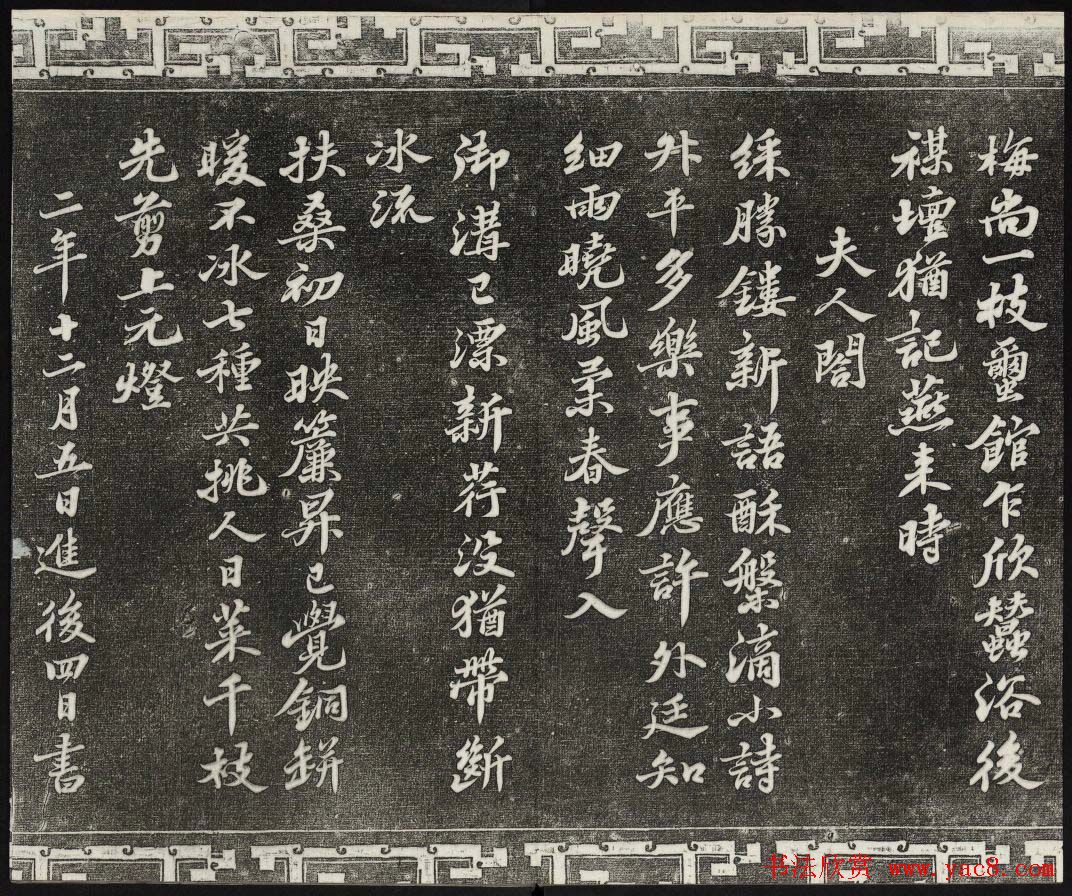 梅尚一枝蠒館乍欣蠶浴後
禖壇猶記燕来時
夫人閤
綵勝鏤新語酥槃滴小詩
升平多樂事應許外廷知
細雨曉風柔春聲入
御溝已漂新荇没猶帶斷
冰流
扶桑初日映簾昇已覺銅缾
暖不冰七種共挑人日菜千枝
先剪上元燈
二年十二月五日進後四日書
书法欣赏 www.yac8.com